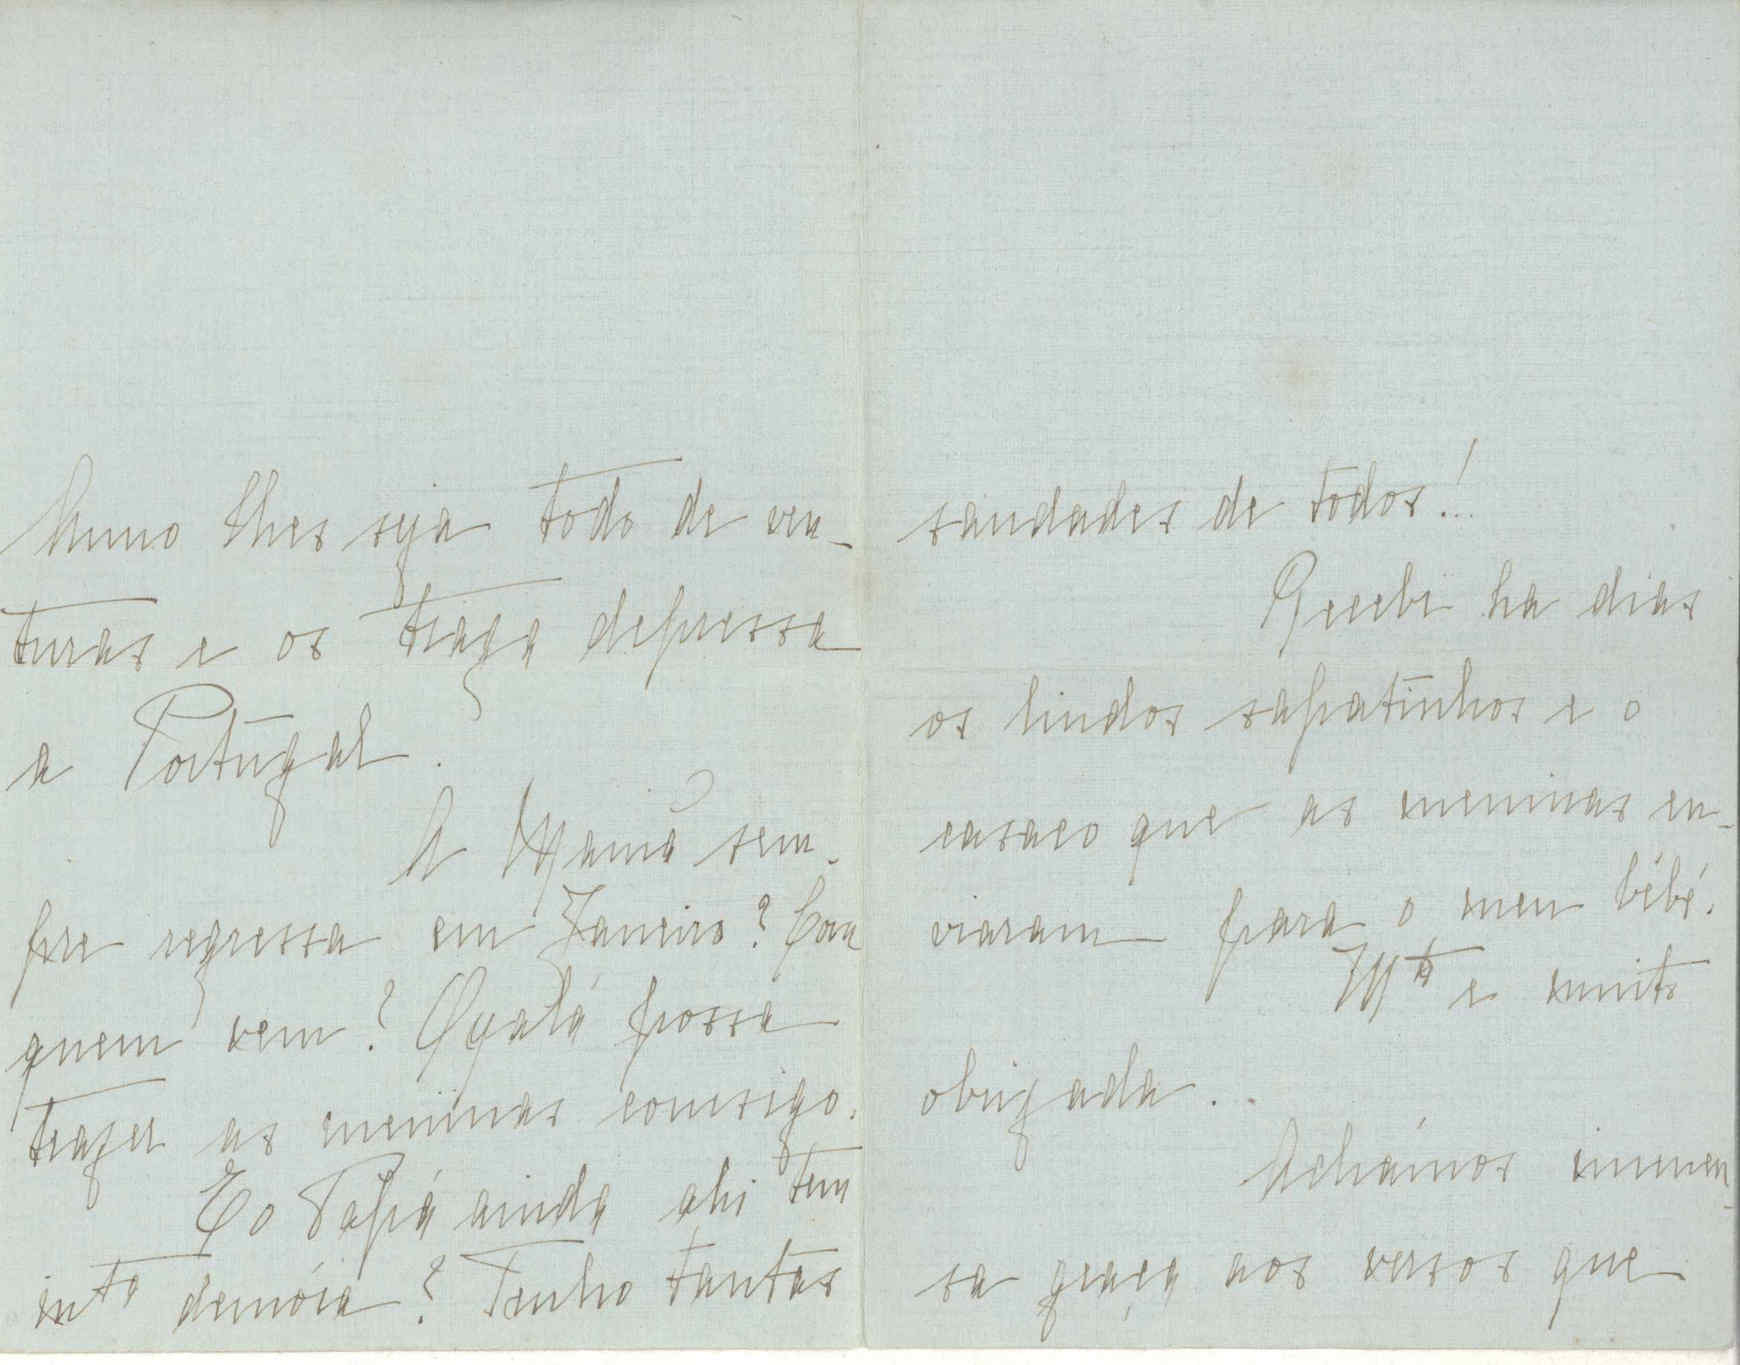 Anno lhes seja todo de ven-
turas e os traga depressa
a Portugal.
A Mamã sem-
pre regressa em Janeiro? Com
quem vem? Oxalá possa
trazer as meninas comsigo.
E o Papá ainda ahi tem
mto demóra? Tenho tantas
saudades de todos!..
Recebi ha dias
os lindos sapatinhos e o
casaco que as meninas en-
viaram para o meu bébé.
Mto e muito
obrigada..
Achámos immen-
sa graça aos versos que